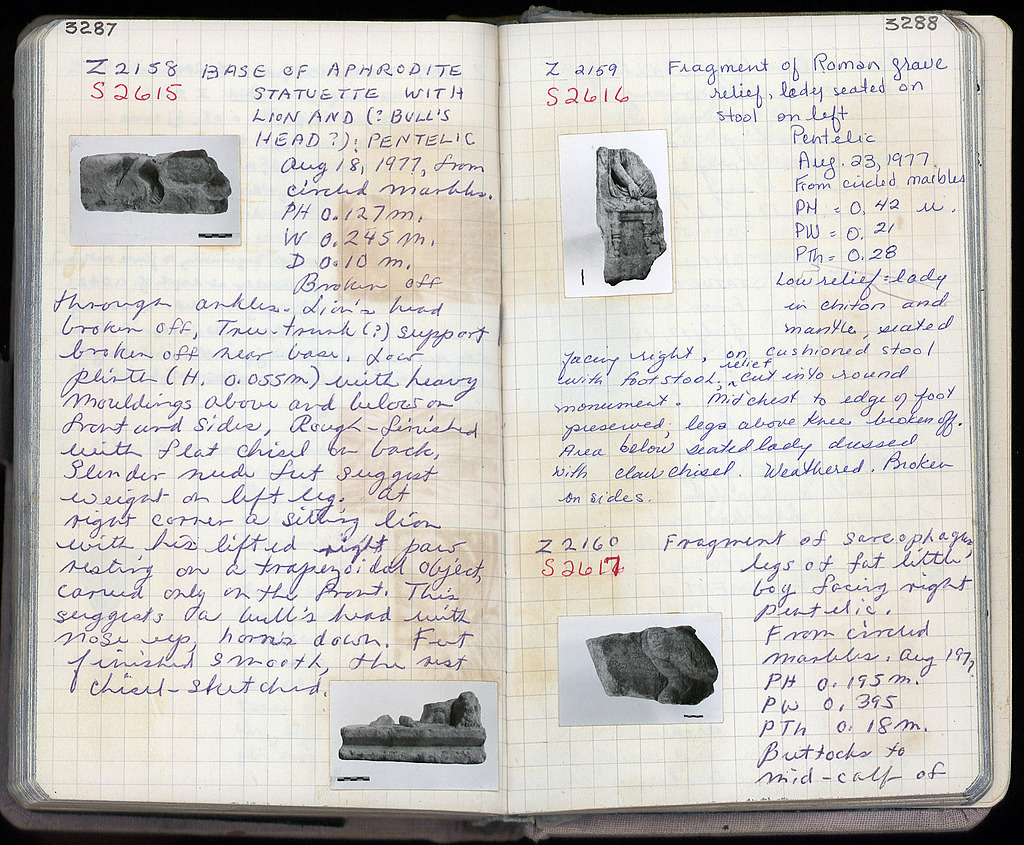 3287
Z 2158 BASE OF APHRODITE
S 2615 STATUETTE WITH
LION AND (? BULL'S
HEAD ?): PENTELIC
Aug 18, 1977, from
circled marbles.
PH 0.127 m.
W 0.245 m.
D 0.10 m.
Broken off
through ankles. Lion's head
broken off, Tree-trunk (?) support
broken off near base. Low
plinth (H. 0.055m) with heavy
mouldings above and below on
front and sides, Rough-finished
with flat chisel on back.
Slender nude feet suggest
weight on left leg. At
right corner a sitting lion
with his lifted right paw
resting on a trapezoidal object,
carved only on the front. This
suggests a bull's head with
nose up, horns down. Feet
finished smooth, the rest
chisel-sketched.
3288
Z 2159 Fragment of Roman grave
S 2616 relief, lady seated on
stool on left
Pentelic
Aug. 23, 1977.
From circled marbles
PH = 0.42 m.
PW = 0.21
PTh = 0.28
Low relief = lady
in chiton and
mantle, seated
facing right, on cushioned stool
with footstool; relief cut into round
monument. Mid chest to edge of foot
preserved, legs above knee broken off.
Area below seated lady dressed
with claw chisel. Weathered. Broken
on sides.
Z 2160 Fragment of sarcophagus,
S 2617 legs of fat little
boy facing right
Pentelic.
From circled
marbles. Aug 1977.
PH 0.195 m.
PW 0.395
PTh 0.18 m.
Buttocks to
mid-calf of